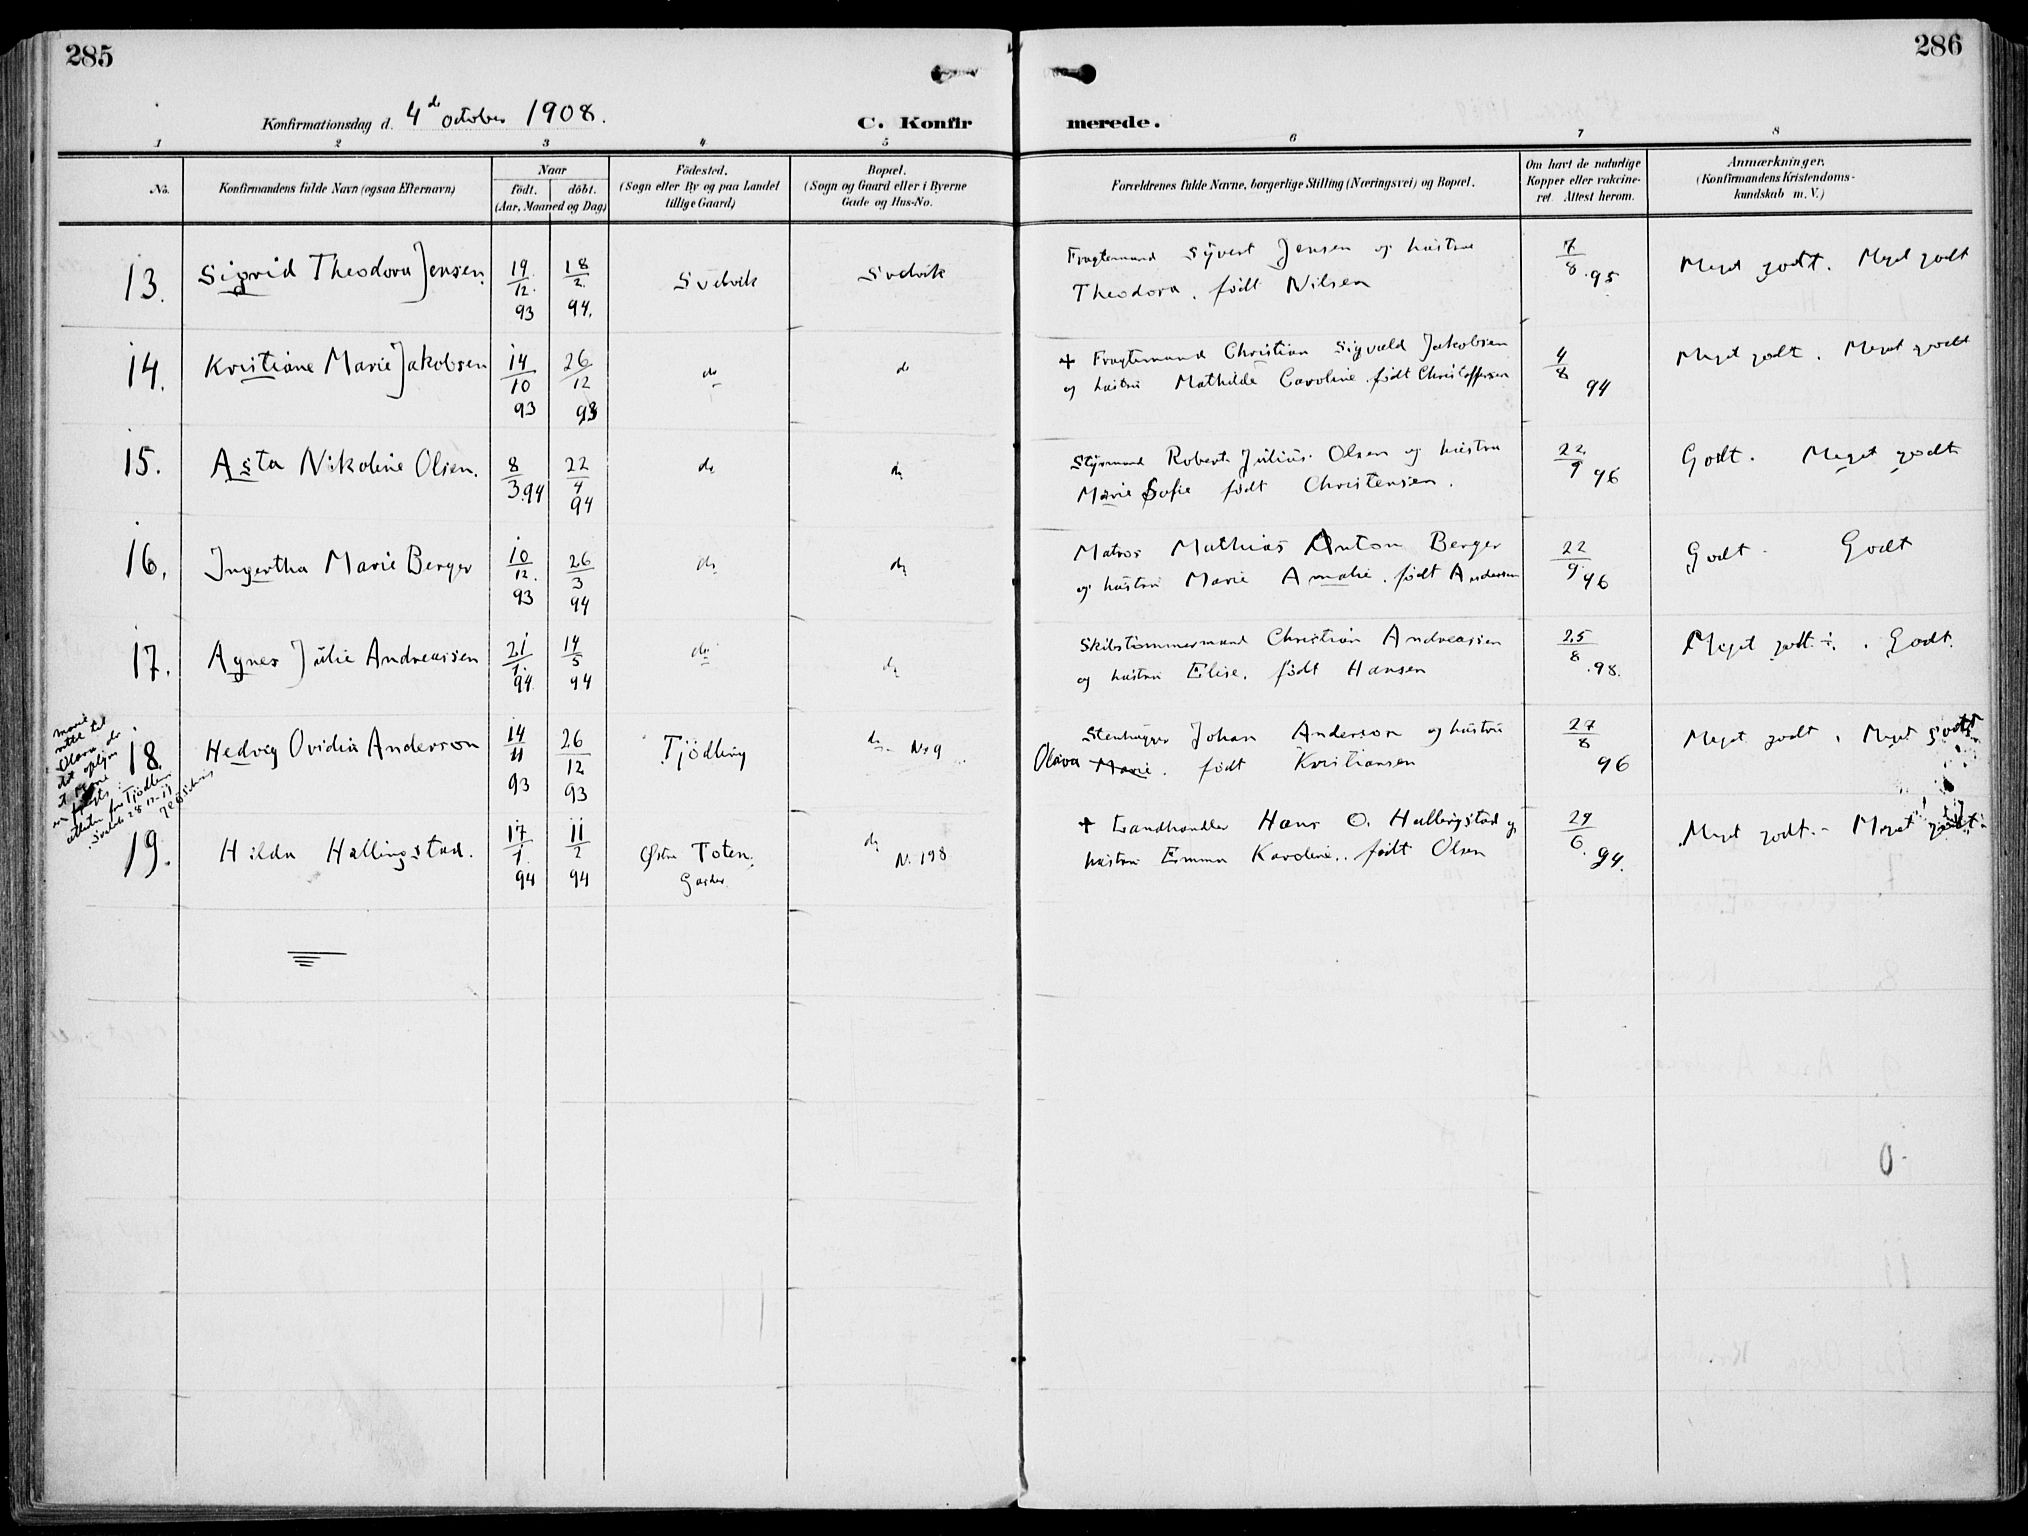 285
286
Konfirmationsdag d. 4de october 1908.
C. Konfir merede.
1 2 3 4 5 6 7 8
No. Konfirmandens fulde Navn (ogsaa Efternavn) Naar født. døbt. (Aar, Maaned og Dag) Födested. (Sogn eller By og paa Landet tillige Gaard) Bopæl. (Sogn og Gaard eller i Byerne Gade og Hus-No. Forældrenes fulde Navne, borgerlige Stilling (Næringsvei) og Bopæl. Om havt de naturlige Kopper eller vaksineret. Attest herom. Anmærkninger. (Konfirmandens Kristendomskundskab m. V.)
13. Sigrid Theodora Jensen. 19/12. 93 18/2. 94. Svelvik Svelvik Fragtemand Syvert Jensen og hustru 7/8 .95 Meget godt. Meget godt
Theodora, født Nilsen
14. Kristiane Marie Jakobsen 14/10 93 26/12 93 do do + Fragtemand Christian Sigvald Jakobsen 4/8 94 Meget godt. Meget godt
og hustru Mathilde Caroline født Christoffersen
15. Asta Nikoline Olsen. 8/3.94 22/4 94 do do Styrmand Robert Julius Olsen og hustru 22/9 96 Godt. Meget godt
Marie Sofie født Christensen.
16. Ingertha Marie Berger 10/12. 93 26/3 94 do do Matros Mathias Anton Berger 22/9 96 Godt. Godt
og hustru Marie Amalie, født Andersen
17. Agnes Julie Andreassen 21/1. 94. 14/5 94 do do Skibstømmermand Christian Andreassen 25/8 .98. Meget godt ÷. Godt.
og hustru Elise, født Hansen
18. Hedvig Ovidia Anderson 14/11 93 26/12 93 Tjödling do No 9 Stenhugger Johan Anderson og hustru 27/8 96 Meget godt, Meget godt
Olava Marie. født Kristiansen
19. Hilda Hallingstad. 17/1. 94 11/2 94 Østre Toten. do N. 198 + Landhandler Hans O. Hallingstad og 29/6. 94. Meget godt. - Meget godt
hustru Emma Karoline, født Olsen